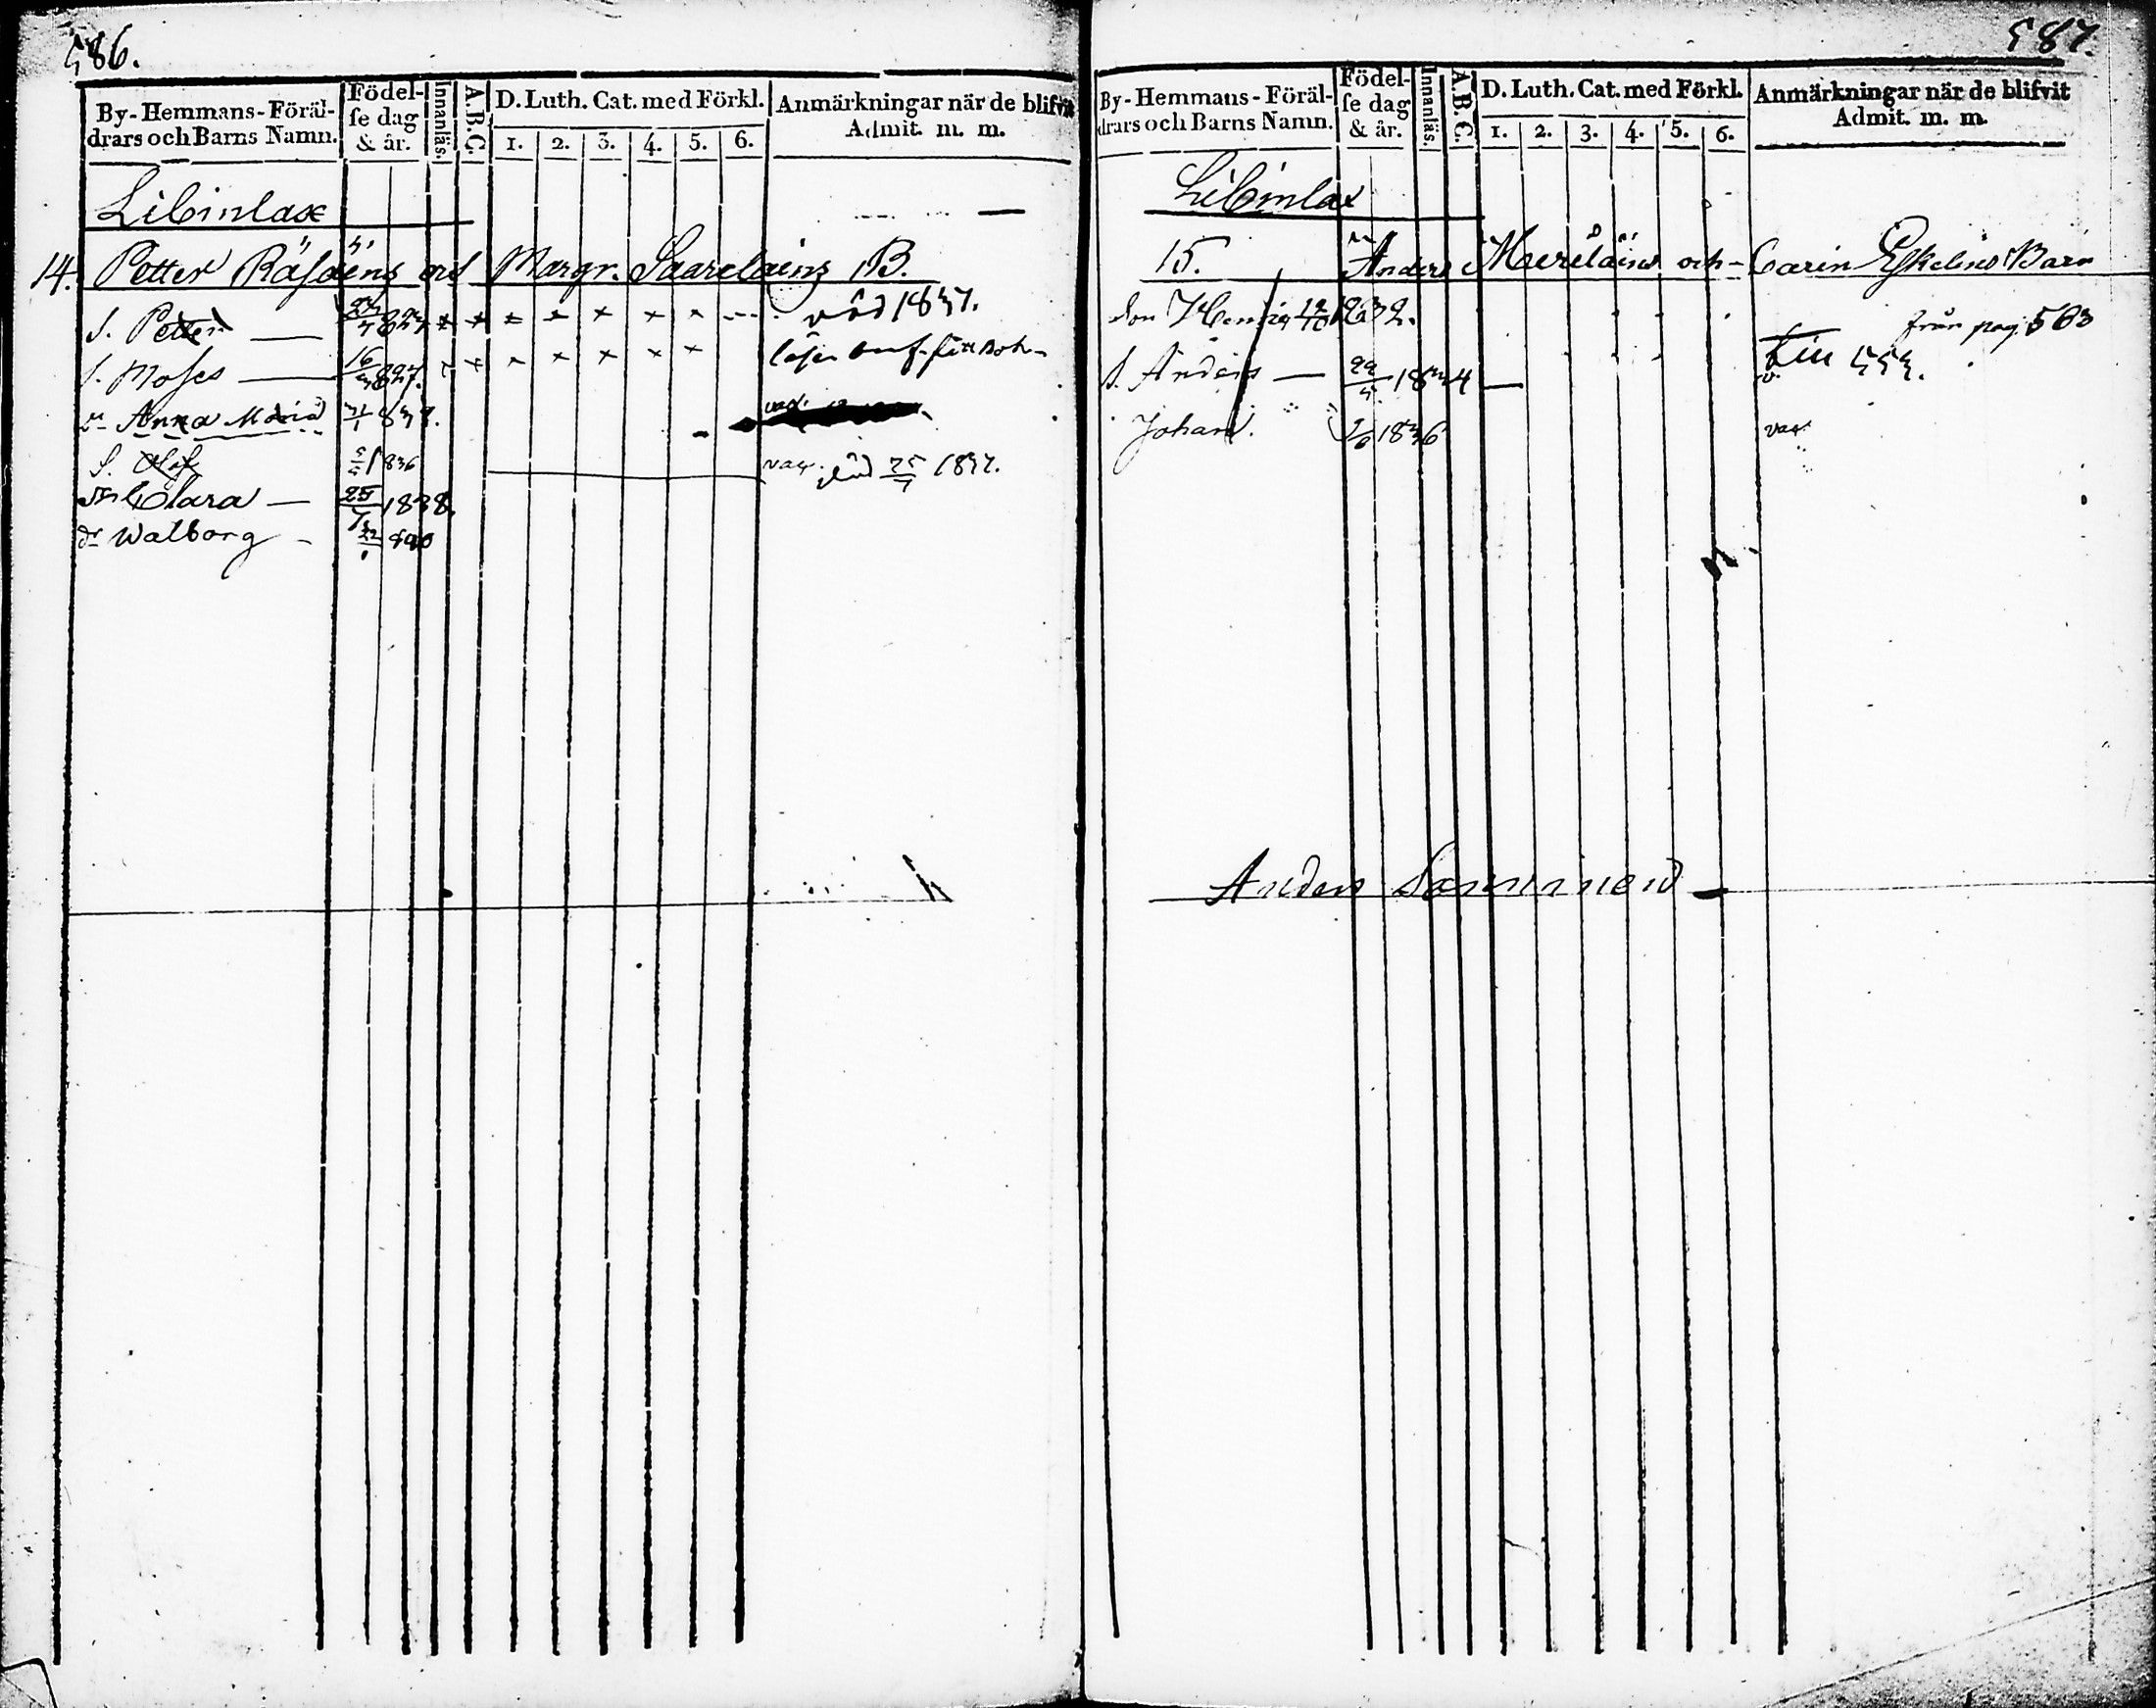 586.
By-Hemmans-Föräl-
drars och Barns Namn.
Födel-
se dag
& år.
Innanläs.
A.B.C.
D. Luth. Cat. med Förkl.
1. 2. 3. 4. 5. 6.
Anmärkningar när de blifvit
Admit. m. m.
Libinlax
14. Petter Räsäens och Margr. Saarelains B.
S. Petter
död 1837.
S. Moses 16 827.
dr Anna Maria
vac.
S. Olof 1836
vac. död 25/7 1837.
dr Clara 25 1838.
dr Walborg
587.
By-Hemmans-Föräl-
drars och Barns Namn.
Födel-
se dag
& år.
Innanläs.
A.B.C.
D. Luth. Cat. med Förkl.
1. 2. 3. 4. 5. 6.
Anmärkningar när de blifvit
Admit. m. m.
Libinlax
15. Anders Maeriläins och Carin Eskelins Barn
Son Henric 12/10 1832.
från pag. 563
S. Anders 1834
till 553.
Johan. 1836
vac.
Anders